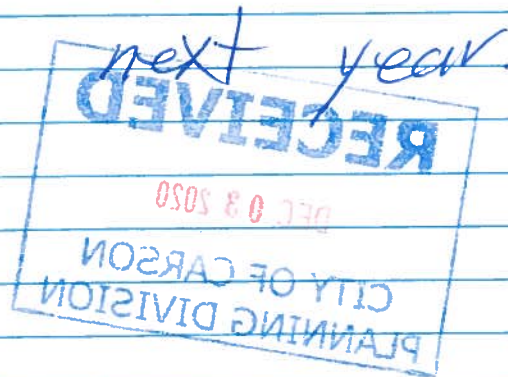 next year.
RECEIVED
DEC 03 2020
CITY OF CARSON
PLANNING DIVISION